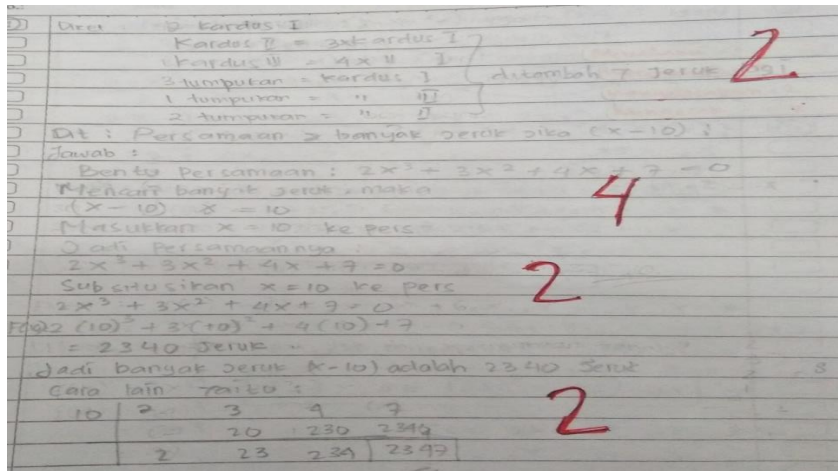 2 kardus I
Kardus II = 3x kardus I
Kardus III = 4x " I
3 tumpukan = kardus I ditambah 7 Jeruk 2
1 tumpukan = " III
2 tumpukan = " II
Dit : Persamaan > banyak Jeruk jika (x-10) :
Jawab :
Bentu Persamaan : 2x³ + 3x² + 4x + 7 = 0
Mencari banyak Jeruk, maka 4
(x-10) x = 10
Masukkan x = 10 ke pers
Jadi Persamaannya
2x³ + 3x² + 4x + 7 = 0
Subsitusikan x = 10 ke Pers 2
2x³ + 3x² + 4x + 7 = 0
2(10)³ + 3(10)² + 4(10)+7
= 2340 Jeruk
Jadi banyak Jeruk (x-10) adalah 2340 Jeruk
Cara lain yaitu :
10 2 3 4 7 2
20 230 2340
2 23 234 2347